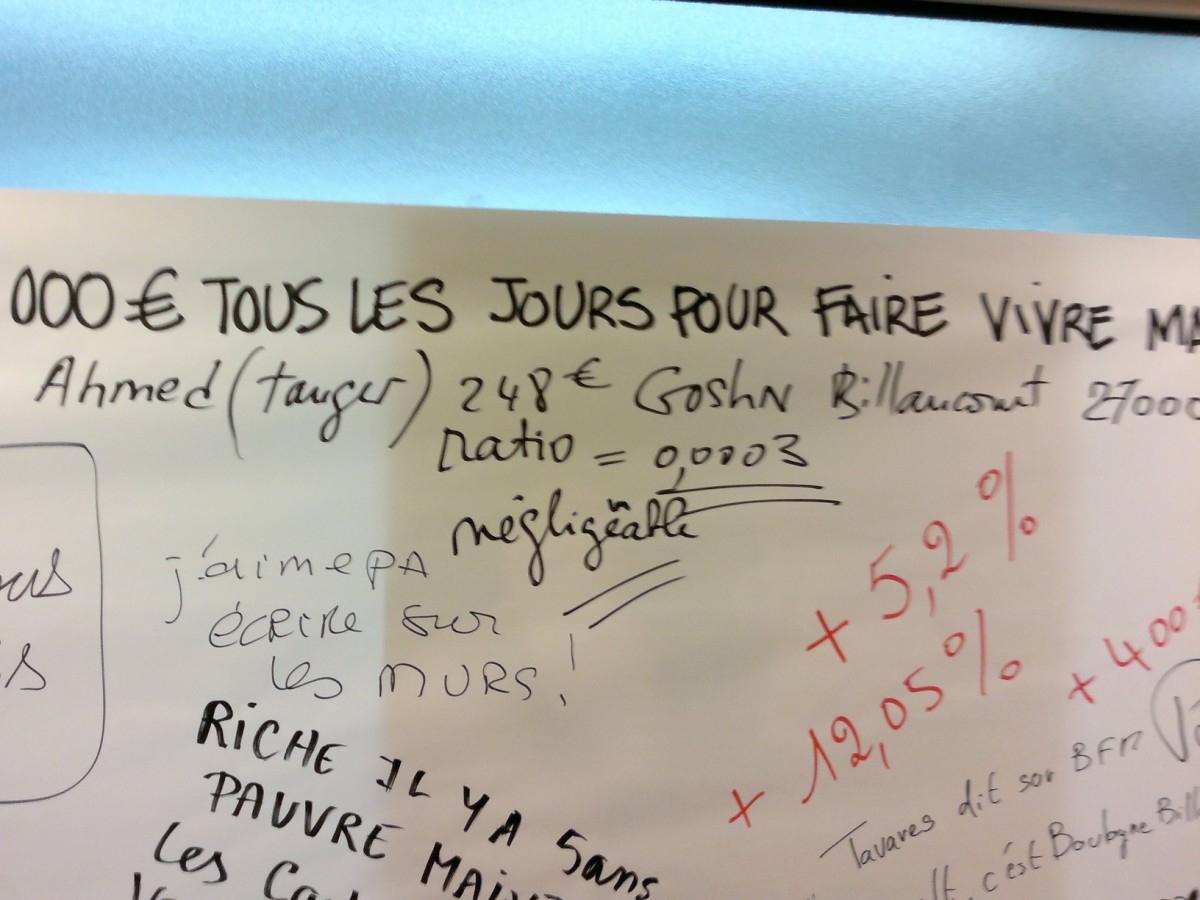 000€ TOUS LES JOURS POUR FAIRE VIVRE MA
Ahmed (tanger) 248€ GoshN Billancourt 27000
ratio = 0,0003
négligeable
j'aime PA
écrire sur
les MURS!
+ 5,2%
+ 12,05%
+ 400€
RICHE IL Y A 5 ans
PAUVRE MAIN
Les
Tavares dit sur BFM
c'est Boulogne Bill